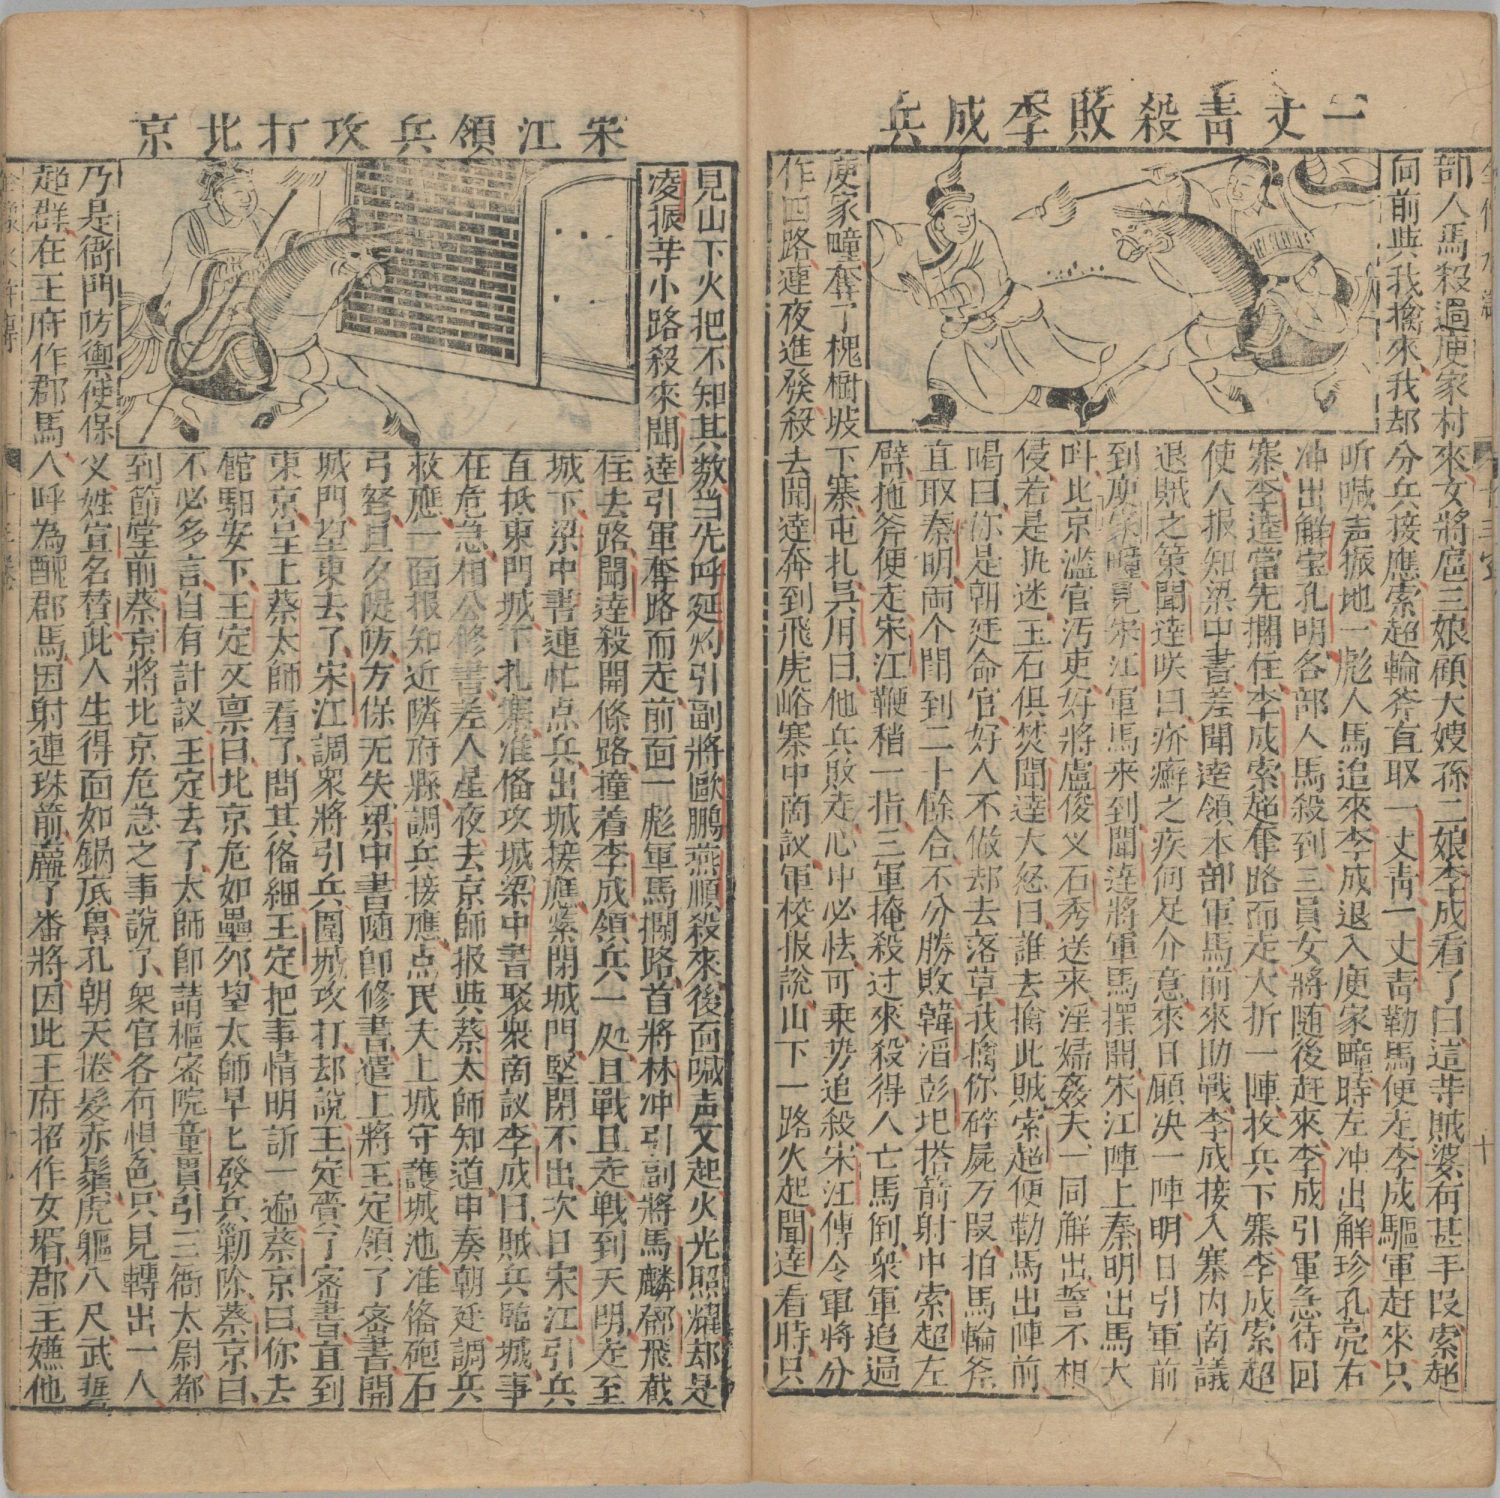 一丈青殺敗李成兵
部人馬殺過庾家村來女將扈三娘顧大嫂孫二娘李成看了曰這等賊婆有甚手段索超
向前與我擒來我却分兵接應索超輪斧直取一丈青一丈青勒馬便走李成驅軍赶來只
听喊声振地一彪人馬追來李成退入庾家疃時左冲出解珍孔亮右
冲出解宝孔明各部人馬殺到三員女將随後赶來李成引軍急待回
寨李逵當先攔住李成索超奪路而走大折一陣收兵下寨李成索超
使人报知梁中書差聞逹領本部軍馬前來助戰李成接入寨内商議
退賊之策聞逹咲曰疥癬之疾何足介意來日願决一陣明日引軍前
到庾家疃見宋江軍馬来到聞逹將軍馬擺開宋江陣上秦明出馬大
叫北京濫官污吏好將盧俊义石秀送来淫婦姦夫一同解出誓不相
侵若是执迷玉石俱焚聞逹大怒曰誰去擒此賊索超便勒馬出陣前
喝曰你是朝廷命官好人不做却去落草我擒你碎屍万段拍馬輪斧
直取秦明兩个閗到二十餘合不分勝敗韓滔彭玘搭箭射中索超左
臂拖斧便走宋江鞭稍一指三軍掩殺过來殺得人亡馬倒衆軍追過
庾家疃奪了槐樹坡下寨屯扎吳用曰他兵敗走心中必怯可乗势追殺宋江傳令軍將分
作四路連夜進發殺去聞逹奔到飛虎峪寨中商议軍校报說山下一路火起聞逹看時只
宋江領兵攻打北京
見山下火把不知其数当先呼延灼引副將歐鵬燕順殺來後面喊声又起火光照耀却是
凌振等小路殺來聞逹引軍奪路而走前面一彪軍馬攔路首將林冲引副將馬麟鄧飛截
住去路聞逹殺開條路撞着李成領兵一処且戰且走战到天明走至
城下梁中書連忙点兵出城接應緊閉城門堅閉不出次日宋江引兵
直抵東門城下扎寨准俻攻城梁中書聚衆商议李成曰賊兵臨城事
在危急相公修書差人星夜去京師报與蔡太師知道申奏朝廷調兵
救應一面报知近隣府縣調兵接應点民夫上城守護城池准俻砲石
弓弩旦夕隄防方保无失梁中書随即修書遣上將王定領了密書開
城門望東去了宋江調衆將引兵圍城攻打却說王定賫了密書直到
東京呈上蔡太師看了問其俻細王定把事情明訴一遍蔡京曰你去
舘馹安下王定又禀曰北京危如壘夘望太師早七發兵勦除蔡京曰
不必多言自有計议王定去了太師即請樞密院童貫引三衙太尉都
到節堂前蔡京將北京危急之事說了衆官各有惧色只見轉出一人
乃是衙門防禦使保义姓宣名賛此人生得面如鍋底鼻孔朝天捲髮赤鬚虎軀八尺武藝
超群在王府作郡馬人呼為醜郡馬因射連珠箭羸了番將因此王府招作女壻郡王嫌他